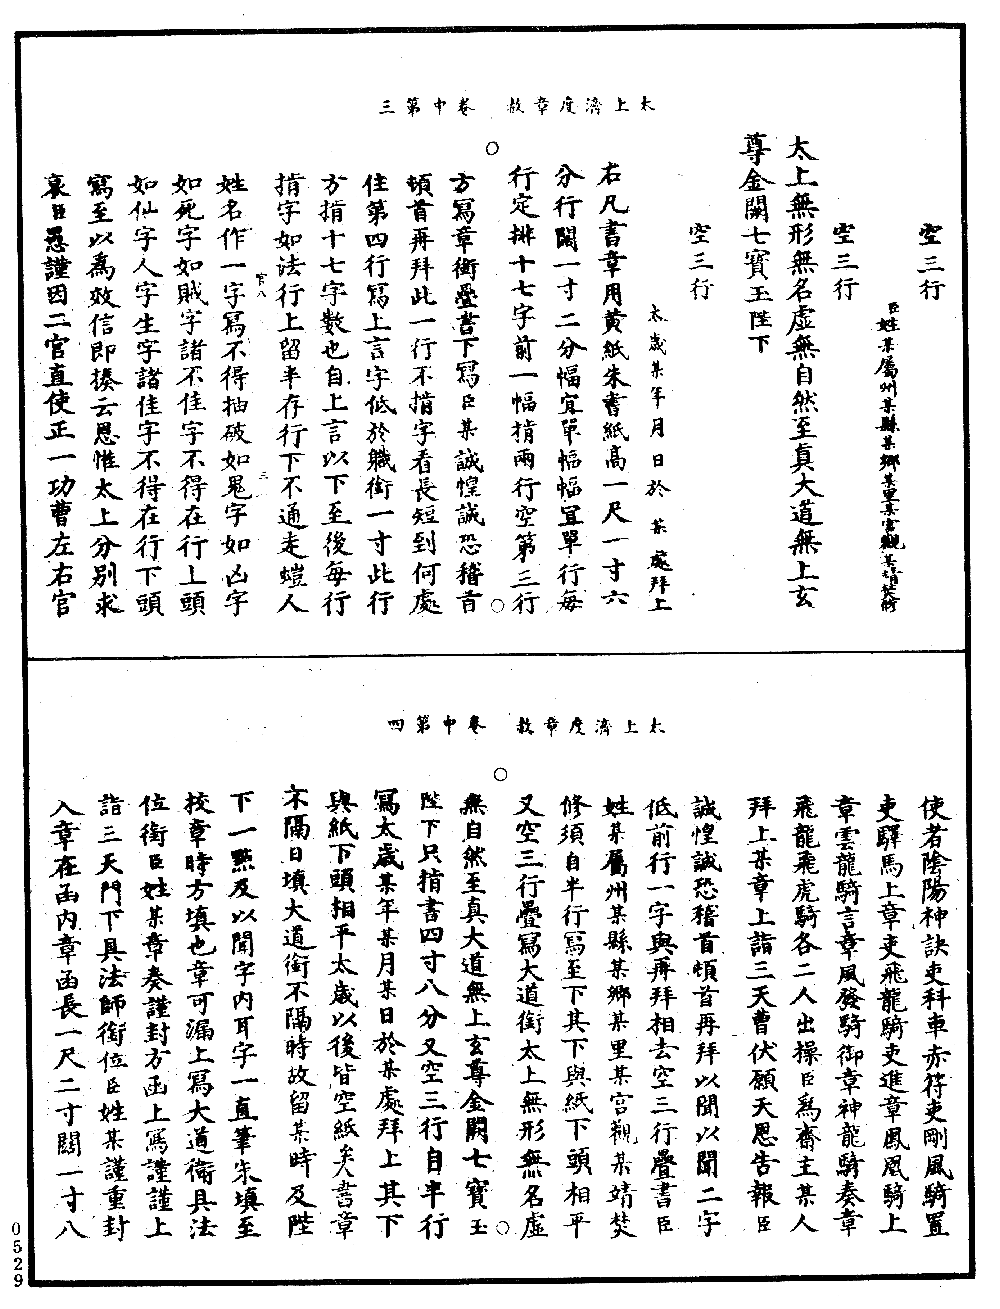 太上濟度章赦　卷中第三
空三行
臣姓某屬州某縣某鄉某里某宮觀某靖焚修
空三行
太上無形無名虛無自然至真大道無上玄
尊金闕七寶玉陛下
空三行
太歲某年月日於某處拜上
右凡書章用黃紙朱書紙高一尺一寸六
分行闊一寸二分幅宜單幅幅宜單行每
行定排十七字前一幅揹兩行空第三行
方寫章銜疊書下寫臣某誠惶誠恐稽首
頓首再拜此一行不揹字看長短到何處
住第四行寫上言字低於職銜一寸此行
方揹十七字數也自上言以下至後每行
揹字如法行上留半存行下不通走螘人
姓名作一字寫不得抽破如鬼字如凶字
如死字如賊字諸不佳字不得在行上頭
如仙字人字生字諸佳字不得在行下頭
寫至以為效信即揍云恩惟太上分別求
哀臣愚謹因二官直使正一功曹左右官
官八
三
太上濟度章赦　卷中第四
使者陰陽神訣吏科車赤符吏剛風騎置
吏驛馬上章吏飛龍騎吏進章鳳凰騎上
章雲龍騎言章風發騎御章神龍騎奏章
飛龍飛虎騎各二人出操臣為齋主某人
拜上某章上詣三天曹伏願天恩告報臣
誠惶誠恐稽首頓首再拜以聞以聞二字
低前行一字與再拜相去空三行疊書臣
姓某屬州某縣某鄉某里某宮觀某靖焚
修須自半行寫至下其下與紙下頭相平
又空三行疊寫大道銜太上無形無名虛
無自然至真大道無上玄尊金闕七寶玉
陛下只揹書四寸八分又空三行自半行
寫太歲某年某月某日於某處拜上其下
與紙下頭相平太歲以後皆空紙矣書章
不隔日填大道銜不隔時故留某時及陛
下一點及以聞字內耳字一直筆朱填至
校章時方填也章可漏上寫大道銜具法
位銜臣姓某章奏謹封方函上寫謹謹上
詣三天門下具法師銜位臣姓某謹重封
入章在函內章函長一尺二寸闊一寸八
0529